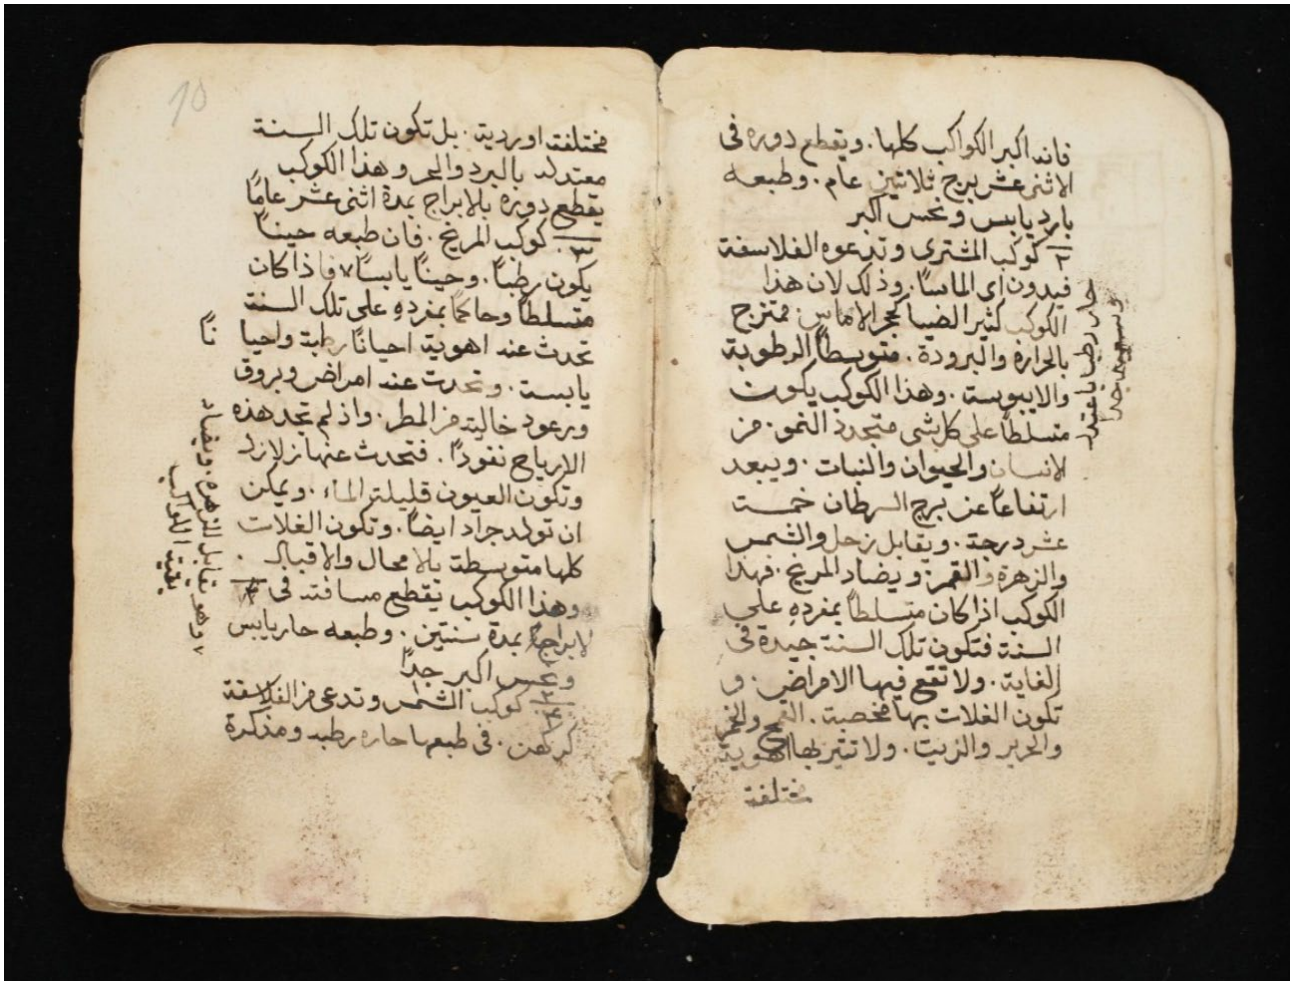 فانه اكبر الكواكب كلها. ويقطع دوره فى
الاثنى عشر برج ثلاثين عام. وطبعه
بارد يابس ونحس اكبر
٢ كوكب المشترى وتدعوه الفلاسفة
فيدون اى الماسًا. وذلك لان هذا
الكوكب كثير الضيا كحجر الاماس. ممتزج
بالحرارة والبرودة. متوسطًا الرطوبة
والايبوسة. وهذا الكوكب يكون
متسلطًا على كل شى متجدد النمو. من
الانسان والحيوان والنبات. ويبعد
ارتفاعًا عن برج السرطان خمسة
عشر درجة. ويقابل زحل والشمس
والزهرة والقمر. ويضاد المريخ. فهذا
الكوكب اذا كان متسلطًا بمفرده على
السنة فتكون تلك السنة جيدة فى
الغاية. ولا تقع فيها الامراض. و
تكون الغلات بها مخصبة. القمح والخمر
والحرير والزيت. ولا تثير بها اهوية
مختلفة
حار رطب باعتدال
وسعيد جدا
10
مختلفة او ردية. بل تكون تلك السنة
معتدله بالبرد والحر وهذا الكوكب
يقطع دوره بالابراج بمدة اثنى عشر عامًا
٣ كوكب المريخ. فان طبعه حينًا
يكون رطبًا. وحينًا يابسًا ٧ فاذا كان
متسلطًا وحاكمًا بمفرده على تلك السنة
تحدث عنه اهوية احيانًا رطبة واحيا
نًا
يابسة. وتحدث عنه امراض وبروق
ورعود خالية من المطر. واذ لم تجد هذه
الارياح نفوذًا. فتحدث عنها زلازل
وتكون العيون قليلة الماء. ويمكن
ان تولد جراد ايضًا. وتكون الغلات
كلها متوسطة بالامحال والاقبال.
وهذا الكوكب يقطع مسافته فى
الابراج بمدة سنتين. وطبعه حار يابس
ونحس اكبر جدًا
كوكب الشمس وتدعى من الفلاسفة
فى طبعها حاره رطبه ومذكرة
٧ وهو يقابل للزهرة. ويضاد
بقية الكواكب